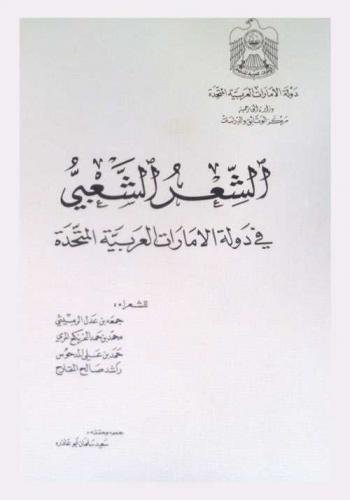 دولة الامارات العربية المتحدة
وزارة الخارجية
مركز الوثائق والدراسات
الشعر الشعبي
في دولة الامارات العربية المتحدة
للشعراء:
جمعه بن عدل الرميثي
محمد بن حمد
حمد بن علي المدحوس
راشد صالح
جمعه وحققه:
سعيد سلمان أبو عاذره